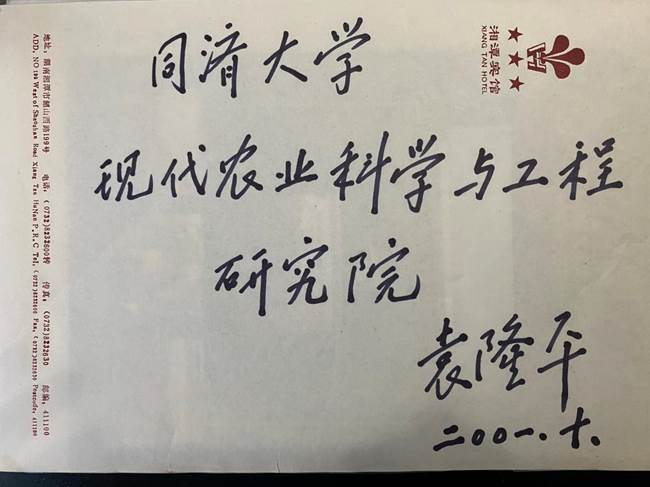 同濟大学
现代农业科学与工程
研究院
袁隆平
二00一.十.
湘潭宾馆
XIANG TAN HOTEL
地址：湖南湘潭市韶山西路199号 电话：(0732)8232600转 传真：(0732)8232630 邮编：411100
ADD, NO 199 West of Shaoshan Road Xiang Tan HuNan P.R.C Tel, (0732)8232600 Fax, (0732)8232630 Postcode, 411100